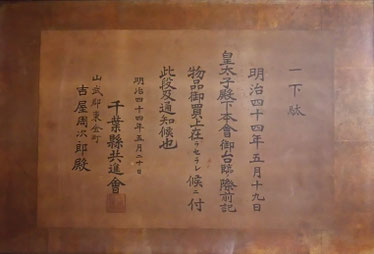 一下駄
明治四十四年五月十九日
皇太子殿下本會御台臨ノ際前記
物品御買上在ラセラレ候ニ付
此段及通知候也
明治四十四年五月二十日
千葉縣共進會
山武郡東金町
吉屋周次郎殿